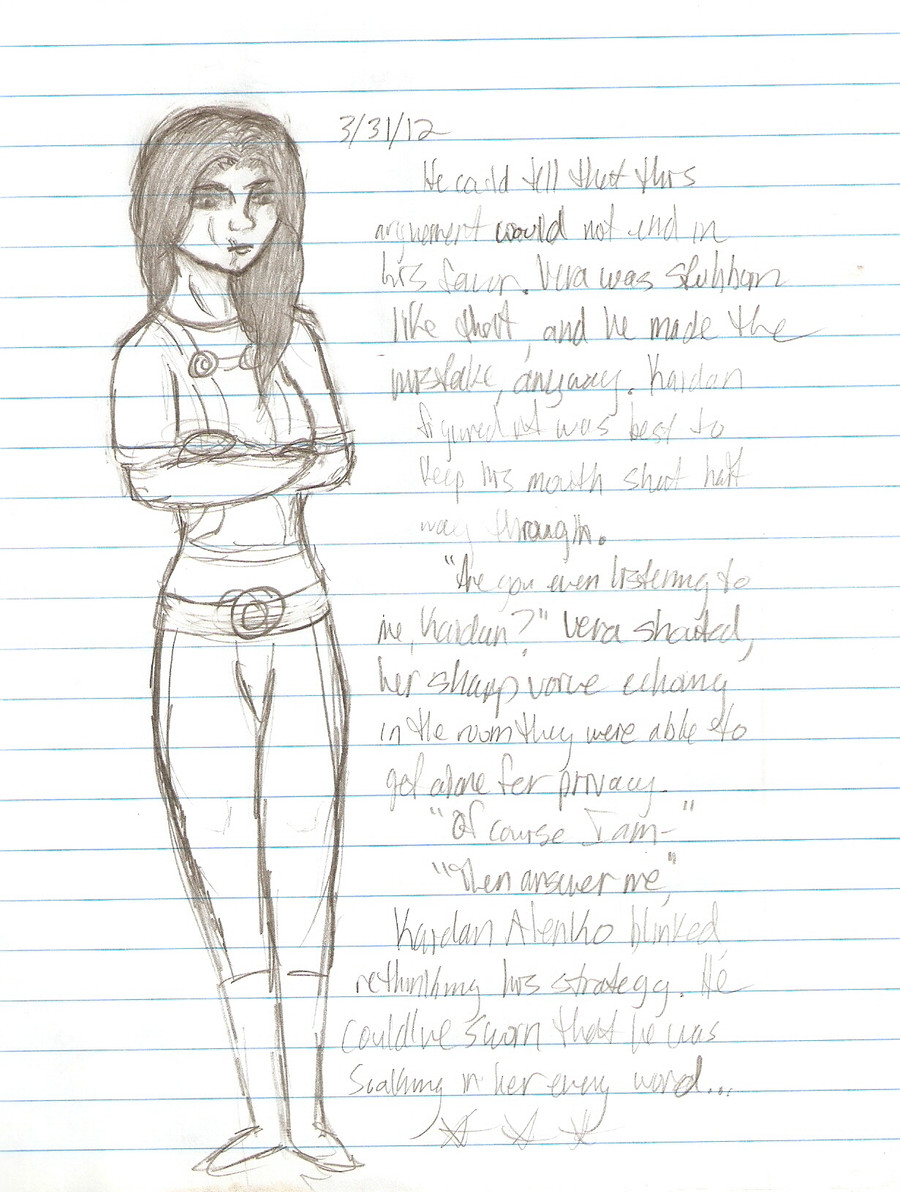 3/31/12
He could tell that this
arguement would not end in
his favor. Vera was stubborn
like that, and he made the
mistake, anyway. Kaidan
figured it was best to
keep his mouth shut half
way through.
"Are you even listening to
me, Kaidan?" Vera shouted,
her sharp voice echoing
in the room they were able to
get alone for privacy.
"Of course I am-"
"Then answer me"
Kaidan Alenko blinked
rethinking his strategy. He
could've sworn that he was
soaking in her every word...